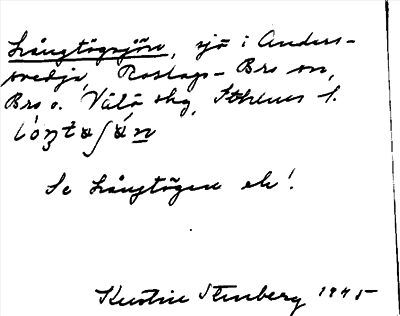 Långtögsjön, sjö i Anders-
svedja, Roslags-Bro sn,
Bro o. Vätö shg, Sthlms l.
Se Långtögen ele!
Kerstin Stenberg 1945